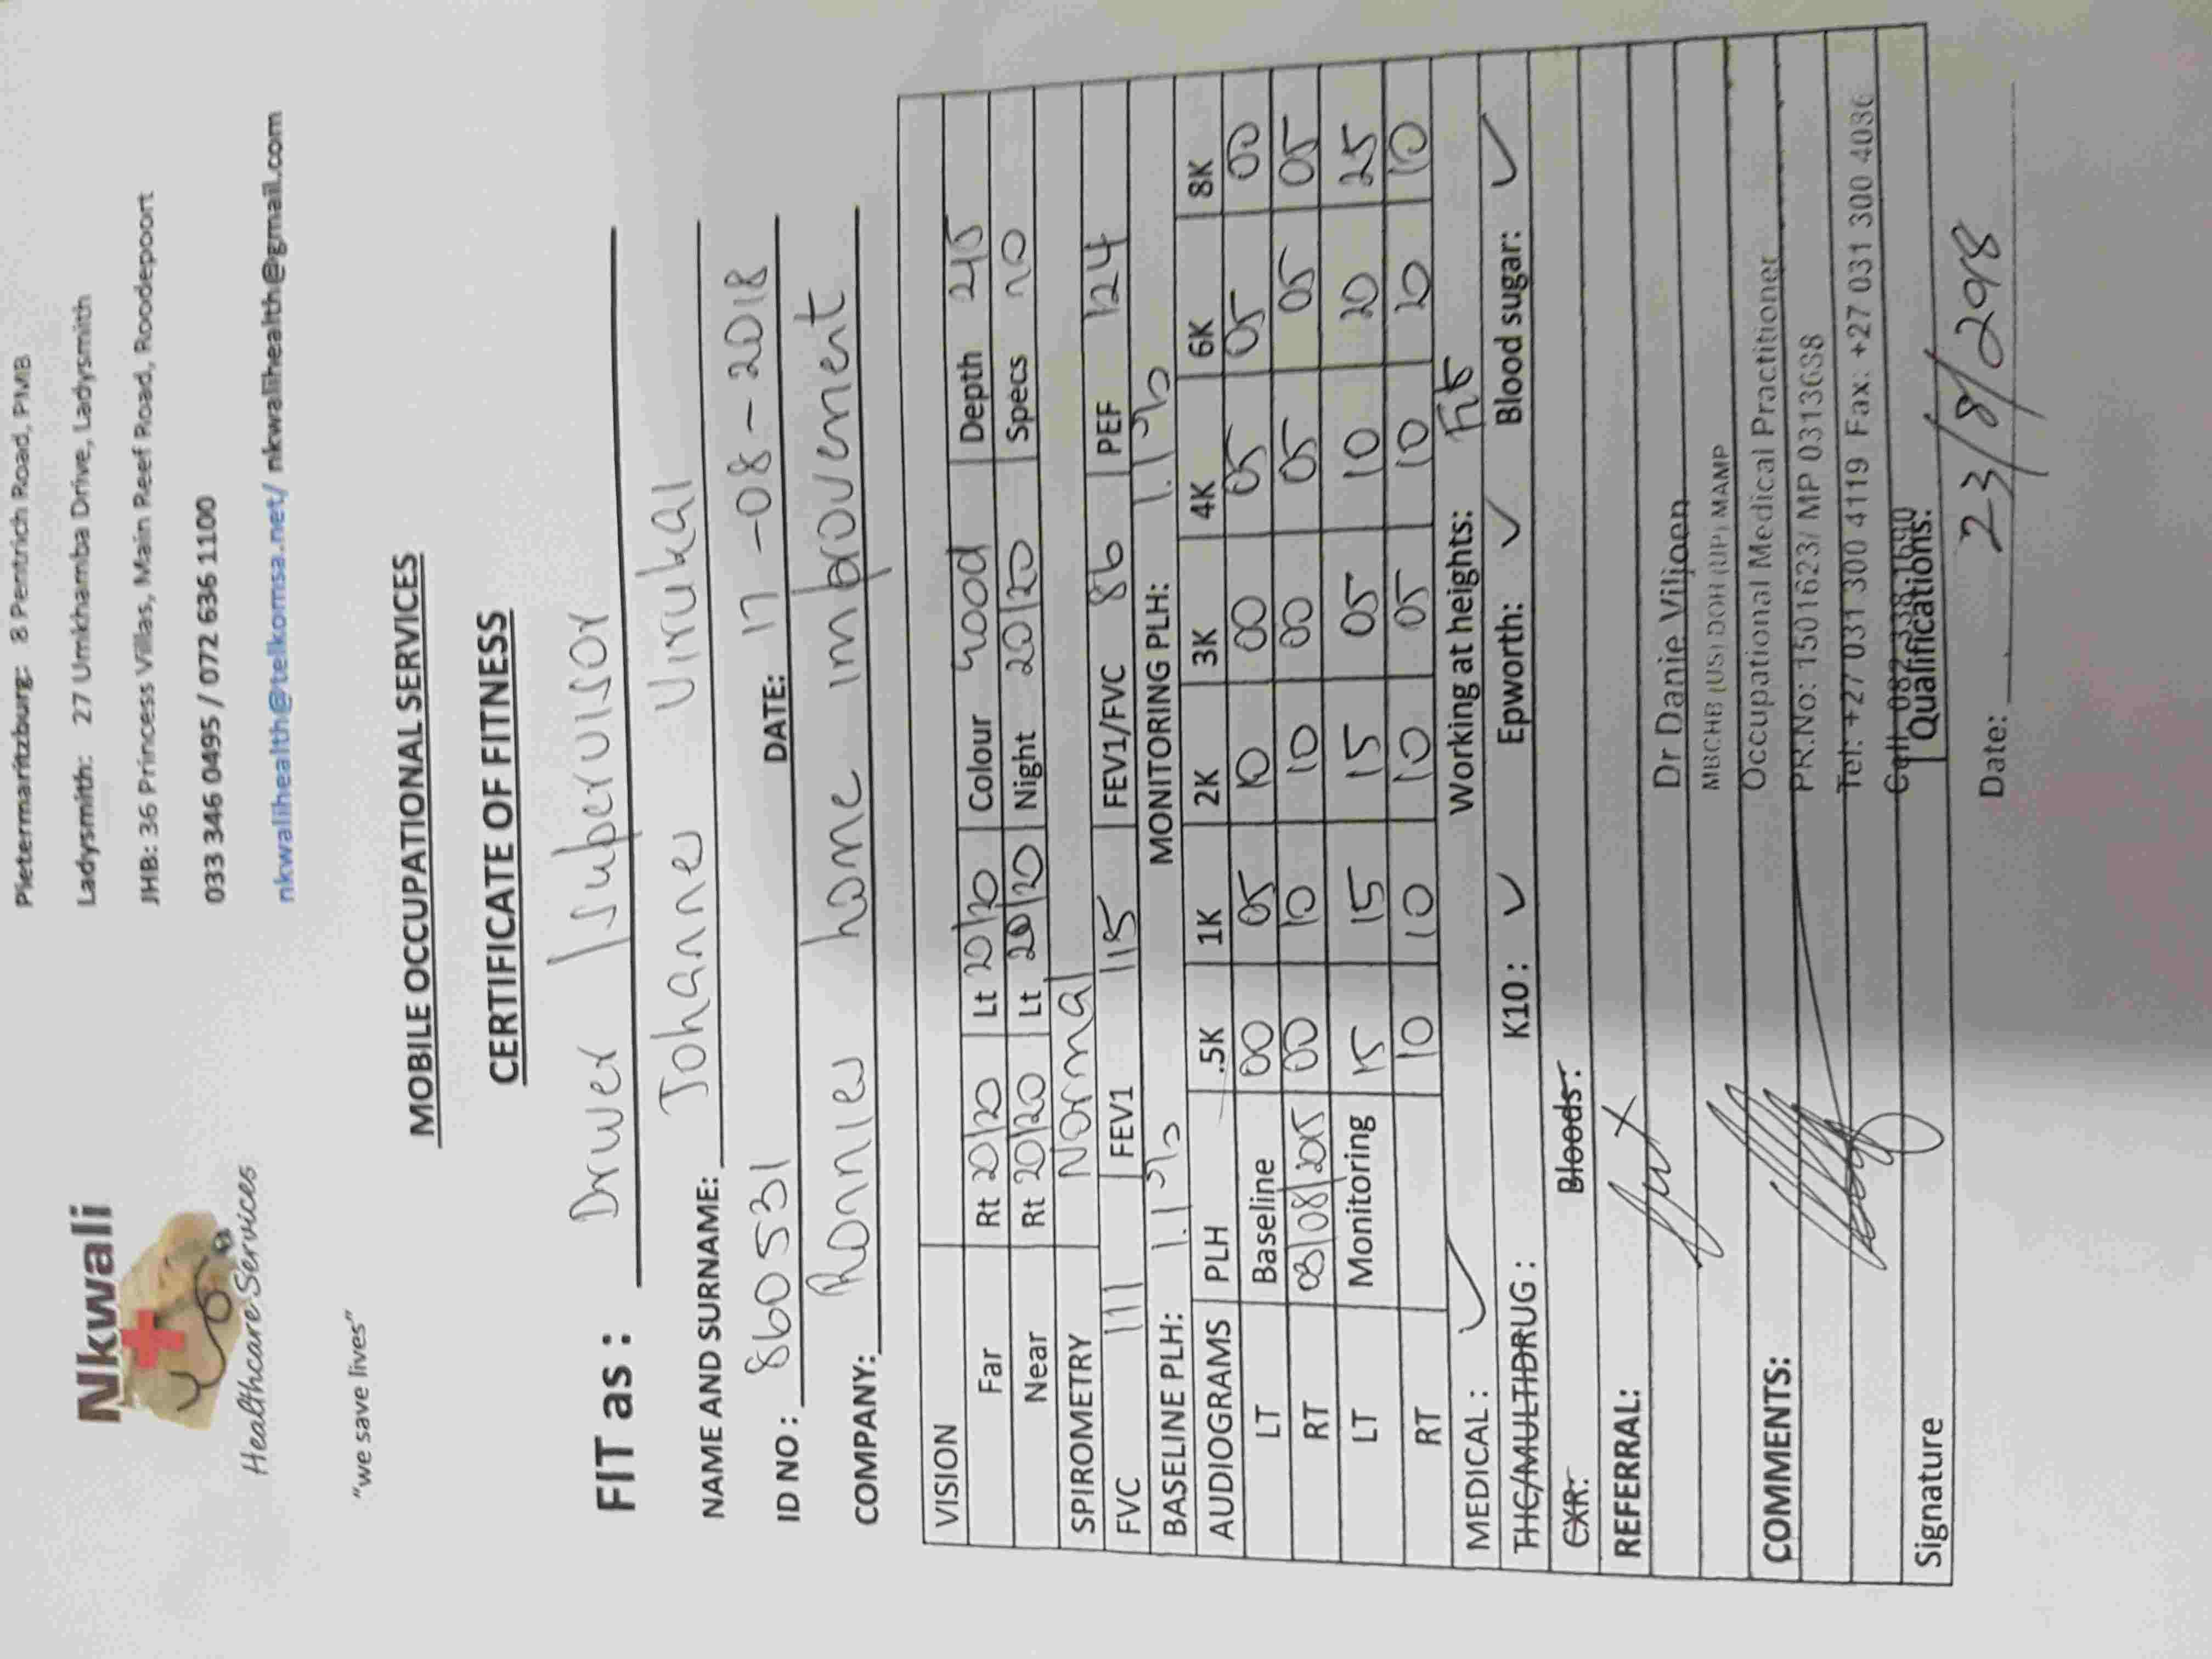 Nkwali
Healthcare Services
"we save lives"
Pietermaritzburg: 8 Pentrich Road, PMB
Ladysmith: 27 Umkhamba Drive, Ladysmith
JHB: 36 Princess Villas, Main Reef Road, Roodepoort
033 346 0495 / 072 636 1100
nkwalihealth@telkomsa.net/ nkwalihealth@gmail.com
MOBILE OCCUPATIONAL SERVICES
CERTIFICATE OF FITNESS
FIT as : Driver / Supervisor
NAME AND SURNAME: Johannes
ID NO : 860531 DATE: 17-08-2018
COMPANY: Ronnies home improvement
VISION
Far Rt 20/20 Lt 20/20 Colour Good Depth
Near Rt 20/20 Lt 20/20 Night 20/20 Specs no
SPIROMETRY Normal
FVC 111 FEV1 115 FEV1/FVC 86 PEF 124
BASELINE PLH: 1.1% MONITORING PLH: 1.1%
AUDIOGRAMS PLH .5K 1K 2K 3K 4K 6K 8K
LT Baseline 00 05 10 00 05 05 00
RT 03/08/2015 00 10 10 00 05 05 05
LT Monitoring 15 15 15 05 10 20 25
RT 10 10 10 05 10 20 10
MEDICAL : ✓ Working at heights: Fit
THC/MULTIDRUG : K10 : ✓ Epworth: ✓ Blood sugar: ✓
CXR: Bloods:
REFERRAL:
Dr Danie Viljoen
MBCHB (US) DOH (UP) MAMP
COMMENTS: Occupational Medical Practitioner
PR.No: 1501623/ MP 0313638
Tel: +27 031 300 4119 Fax: +27 031 300 4036
Signature Qualifications:
Date: 23/8/2018